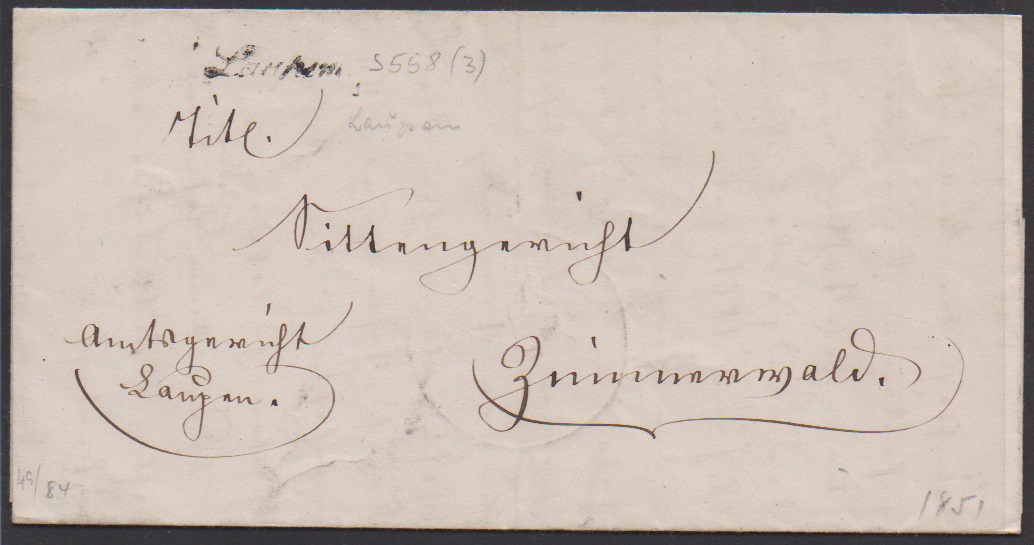 Laupen S558 (3)
Titl.
Laupen
Sittengericht
Amtsgericht
Laupen.
Zimmerwald.
49/84
1851